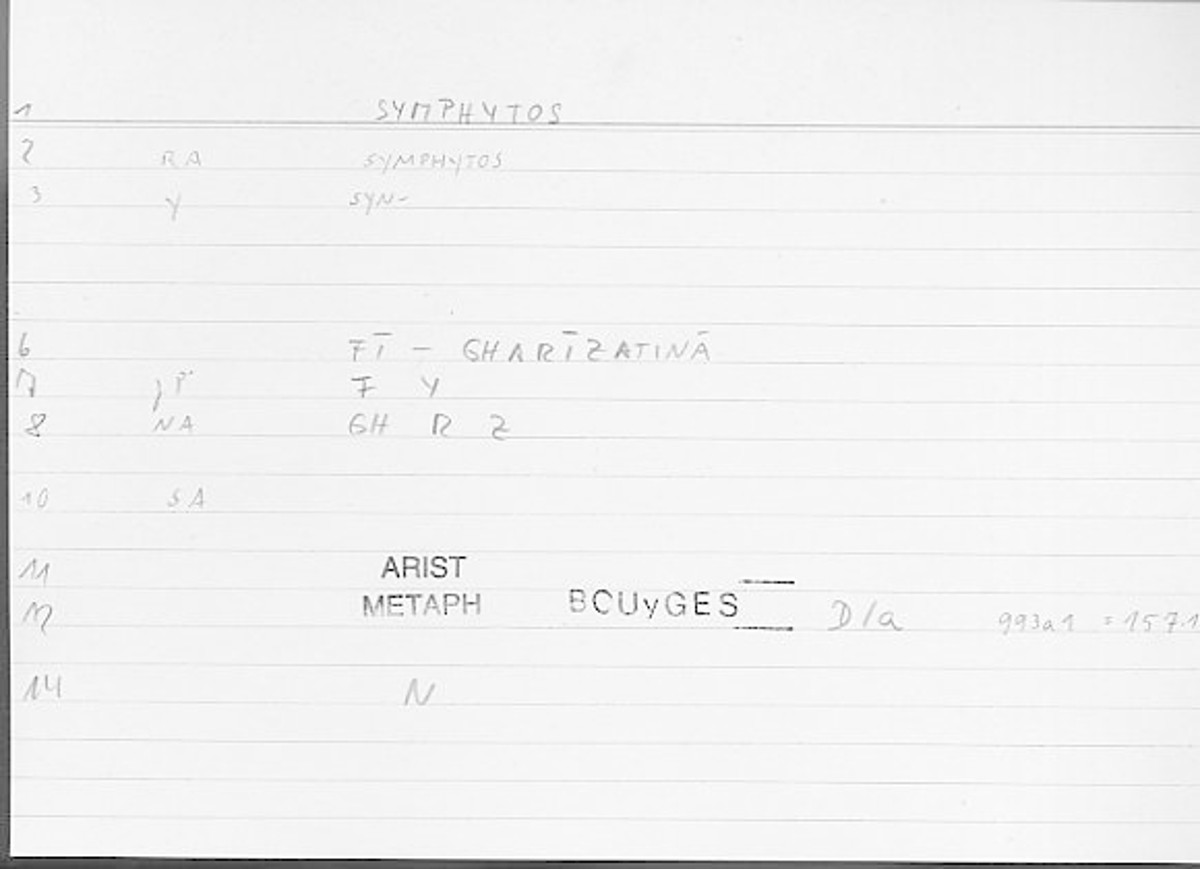 1 SYMPHYTOS
2 RA SYMPHYTOS
3 Y SYN-
6 FĪ - GHARĪZATINĀ
7 F Y
8 NA GH R Z
10 SA
11 ARIST
12 METAPH BCUyGES D/a 993a1 = 157.1
14 N